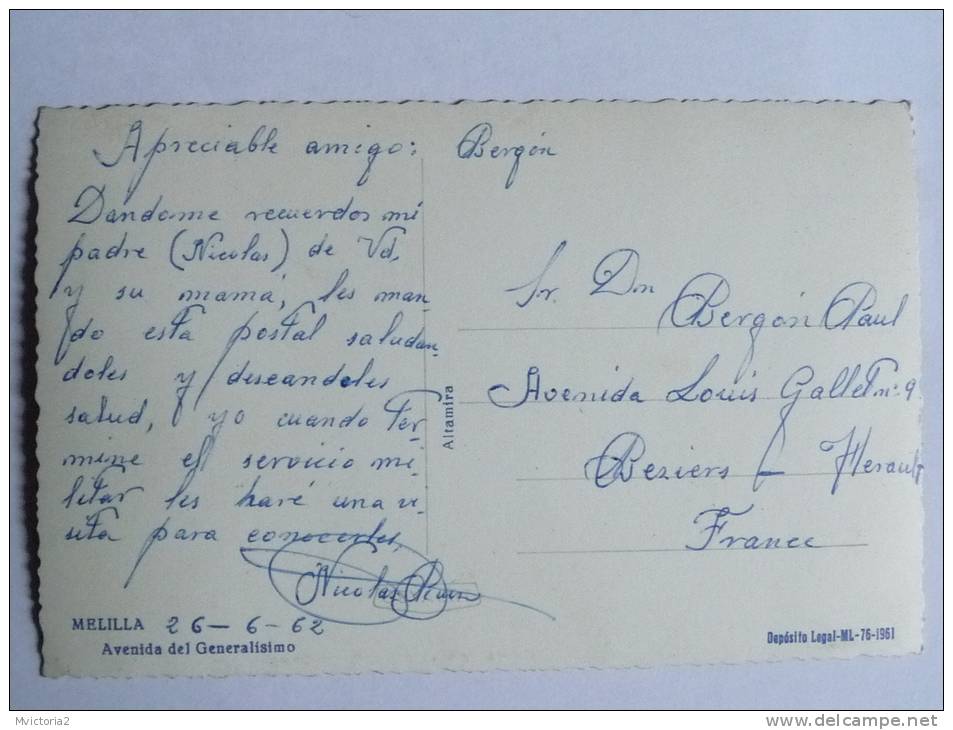 Apreciable amigo: Bergón
Dandome recuerdos mi
padre (Nicolas) de Vd.
y su mamá, les man
do esta postal saludan-
doles y deseandoles
salud, yo cuando ter-
mine el servicio mi-
litar les haré una vi-
sita para conocerles.
Nicolas
MELILLA 26-6-62
Avenida del Generalísimo
Altamira
Sr. Dn
Bergón Paul
Avenida Louis Gallet nº 9
Beziers - Herault
France
Depósito Legal-ML-76-1961
Mvictoria2
www.delcampe.net